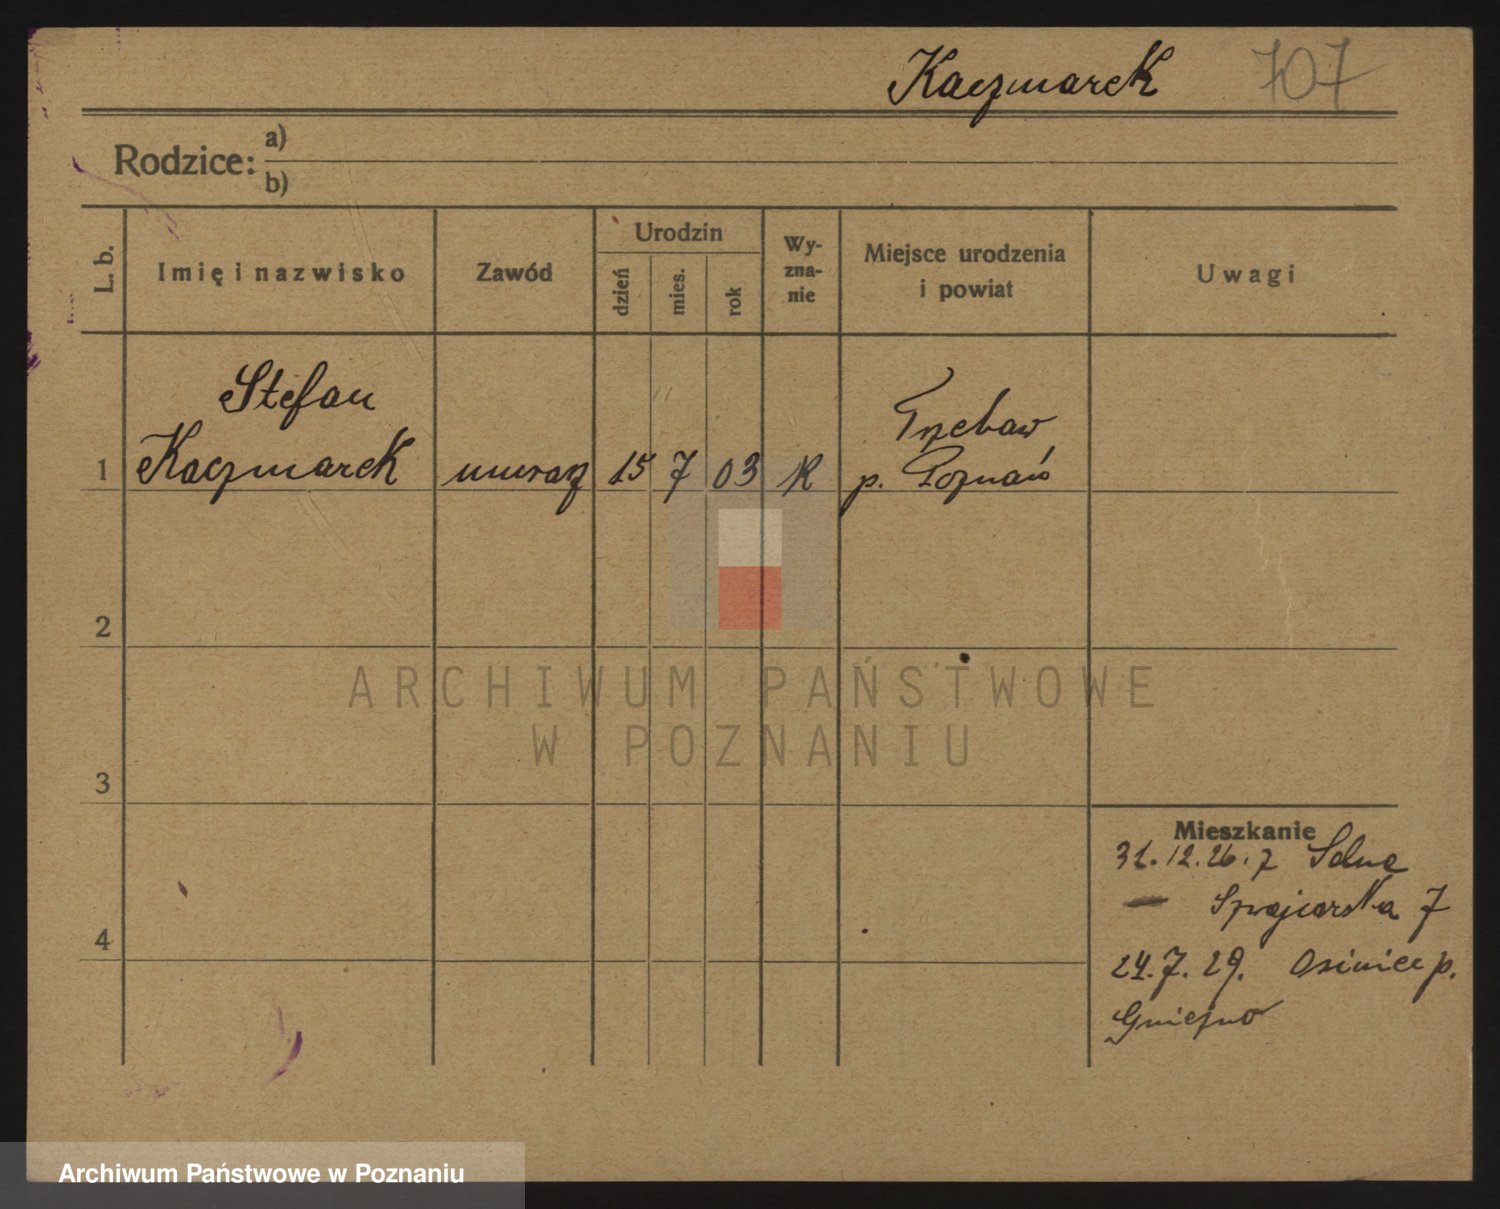 Kaczmarek 707
Rodzice: a)
b)
L. b.
Imię i nazwisko
Zawód
Urodzin
dzień
mies.
rok
Wy-
zna-
nie
Miejsce urodzenia
i powiat
Uwagi
Stefan
1 Kaczmarek murarz 15 7 03 K
Trzebaw
p. Poznań
2
3
4
Mieszkanie
31.12.26. z
24.7.29. Osiniec p.
Gniezno
ARCHIWUM PAŃSTWOWE
W POZNANIU
Archiwum Państwowe w Poznaniu